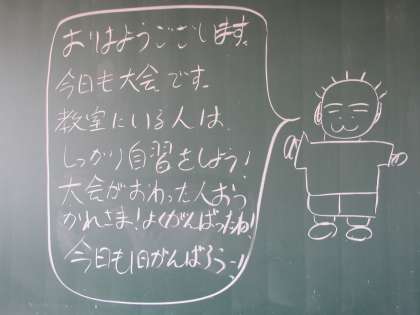 おはようございます。
今日も大会です。
教室にいる人は、
しっかり自習をしよう!
大会がおわった人おつ
かれさま!よくがんばったね!
今日も1日がんばろうー!